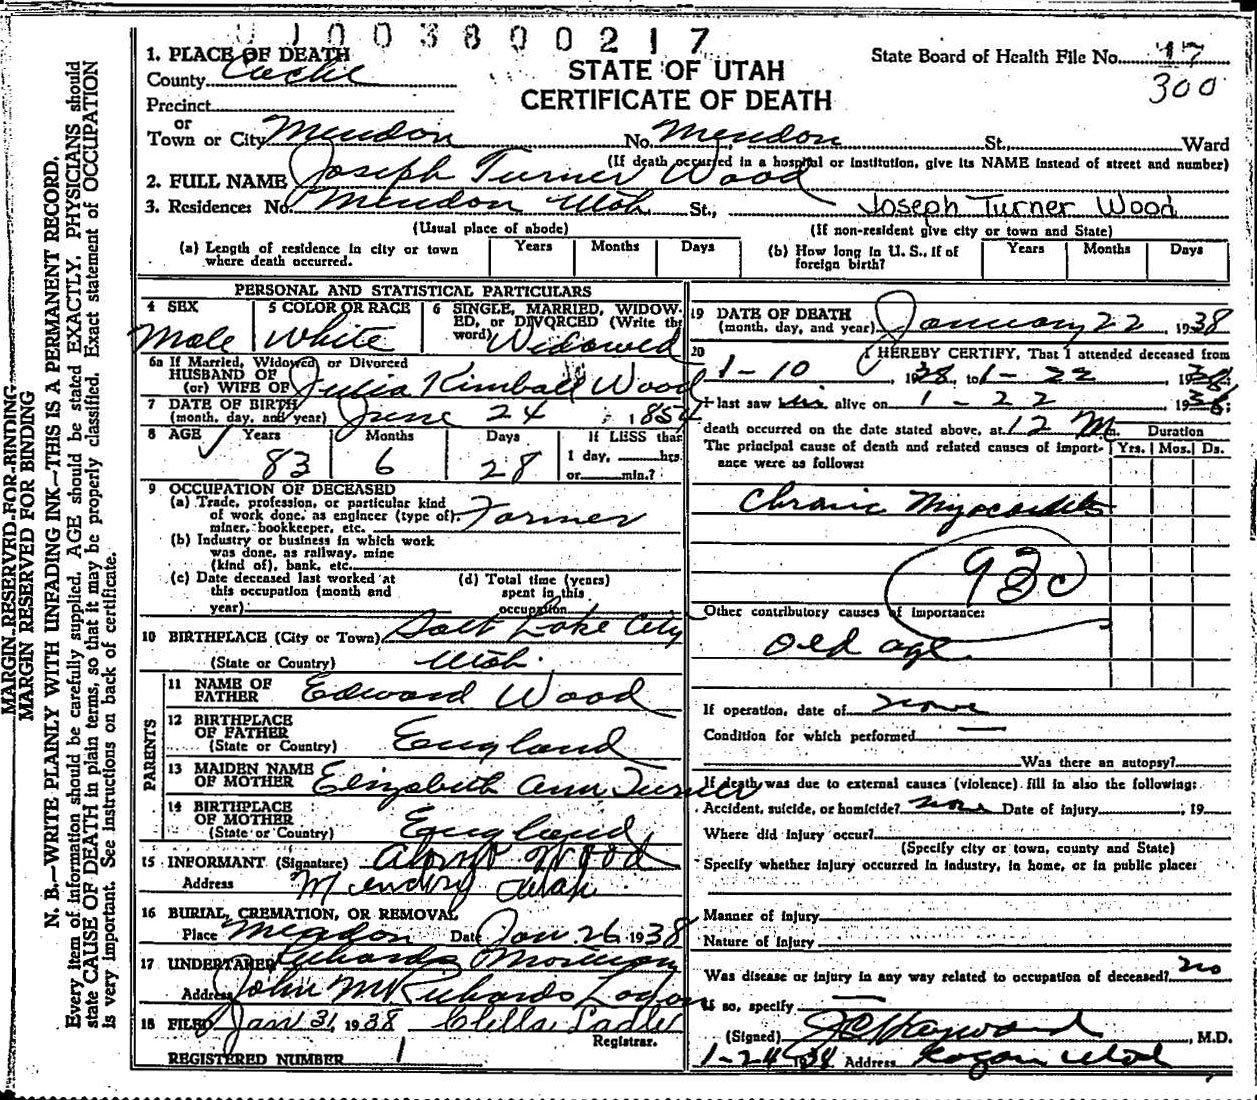 0 1 0 0 3 8 0 0 2 1 7
1. PLACE OF DEATH
County Cache
STATE OF UTAH
CERTIFICATE OF DEATH
State Board of Health File No. 17
300
Precinct
or
Town or City Mendon No. Mendon St., Ward
(If death occurred in a hospital or institution, give its NAME instead of street and number)
2. FULL NAME Joseph Turner Wood
3. Residence: No. Mendon Utah St., Joseph Turner Wood
(Usual place of abode) (If non-resident give city or town and State)
(a) Length of residence in city or town where death occurred. Years Months Days
(b) How long in U. S., if of foreign birth? Years Months Days
PERSONAL AND STATISTICAL PARTICULARS
4 SEX Male
5 COLOR OR RACE White
6 SINGLE, MARRIED, WIDOWED, or DIVORCED (Write the word) Widowed
6a If Married, Widowed or Divorced
HUSBAND OF
(or) WIFE OF Julia Kimball Wood
7 DATE OF BIRTH
(month, day, and year) June 24, 1854
8 AGE Years Months Days If LESS than
83 6 28 1 day, hrs.
or min.?
9 OCCUPATION OF DECEASED
(a) Trade, profession, or particular kind
of work done, as engineer (type of), Farmer
miner, bookkeeper, etc.
(b) Industry or business in which work
was done, as railway, mine
(kind of), bank, etc.
(c) Date deceased last worked at
this occupation (month and
year)
(d) Total time (years)
spent in this
occupation
10 BIRTHPLACE (City or Town) Salt Lake City
(State or Country) Utah.
PARENTS
11 NAME OF
FATHER Edward Wood
12 BIRTHPLACE
OF FATHER
(State or Country) England
13 MAIDEN NAME
OF MOTHER Elizabeth Ann Turner
14 BIRTHPLACE
OF MOTHER
(State or Country) England
15 INFORMANT (Signature) Alonzo Wood
Address Mendon Utah
16 BURIAL, CREMATION, OR REMOVAL
Place Mendon Date Jan 26 1938
17 UNDERTAKER Richards Mortuary
Address John M Richards Logan
18 FILED Jan 31, 1938
Registrar.
REGISTERED NUMBER 1
19 DATE OF DEATH
(month, day, and year) January 22, 1938
20 I HEREBY CERTIFY, That I attended deceased from
1-10 1938, to 1-22 1938,
I last saw him alive on 1-22 1938;
death occurred on the date stated above, at 12 M m. Duration
The principal cause of death and related causes of import- Yrs. Mos. Ds.
ance were as follows:
Chronic Myocarditis
93c
Other contributory causes of importance:
old age
If operation, date of none
Condition for which performed —
Was there an autopsy?
If death was due to external causes (violence) fill in also the following:
Accident, suicide, or homicide? none Date of injury, 19
Where did injury occur?
(Specify city or town, county and State)
Specify whether injury occurred in industry, in home, or in public place:
Manner of injury
Nature of injury
Was disease or injury in any way related to occupation of deceased? no
If so, specify —
(Signed) J C Hayward, M.D.
1-24 1938 Address Logan Utah
MARGIN RESERVED FOR BINDING
MARGIN RESERVED FOR BINDING
N. B.—WRITE PLAINLY WITH UNFADING INK—THIS IS A PERMANENT RECORD.
Every item of information should be carefully supplied. AGE should be stated EXACTLY. PHYSICIANS should
state CAUSE OF DEATH in plain terms, so that it may be properly classified. Exact statement of OCCUPATION
is very important. See instructions on back of certificate.